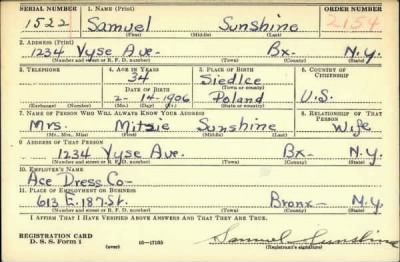 SERIAL NUMBER 1. NAME (Print) ORDER NUMBER
1522 Samuel Sunshine 2154
(First) (Middle) (Last)
2. ADDRESS (Print)
1234 Vyse Ave. Bx. N.Y.
(Number and street or R. F. D. number) (Town) (County) (State)
3. TELEPHONE 4. AGE IN YEARS 5. PLACE OF BIRTH 6. COUNTRY OF CITIZENSHIP
34 Siedlce
DATE OF BIRTH (Town or county)
2-14-1906 Poland U.S.
(Exchange) (Number) (Mo.) (Day) (Yr.) (State or country)
7. NAME OF PERSON WHO WILL ALWAYS KNOW YOUR ADDRESS 8. RELATIONSHIP OF THAT PERSON
Mrs. Mitzie Sunshine Wife
(Mr., Mrs., Miss) (First) (Middle) (Last)
9. ADDRESS OF THAT PERSON
1234 Vyse Ave. Bx- N.Y.
(Number and street or R. F. D. number) (Town) (County) (State)
10. EMPLOYER'S NAME
Ace Dress Co-
11. PLACE OF EMPLOYMENT OR BUSINESS
613 E. 187-St. Bronx- N.Y.
(Number and street or R. F. D. number) (Town) (County) (State)
I AFFIRM THAT I HAVE VERIFIED ABOVE ANSWERS AND THAT THEY ARE TRUE.
REGISTRATION CARD
D. S. S. FORM 1 (over) 16-17105 Samuel Sunshine
(Registrant's signature)